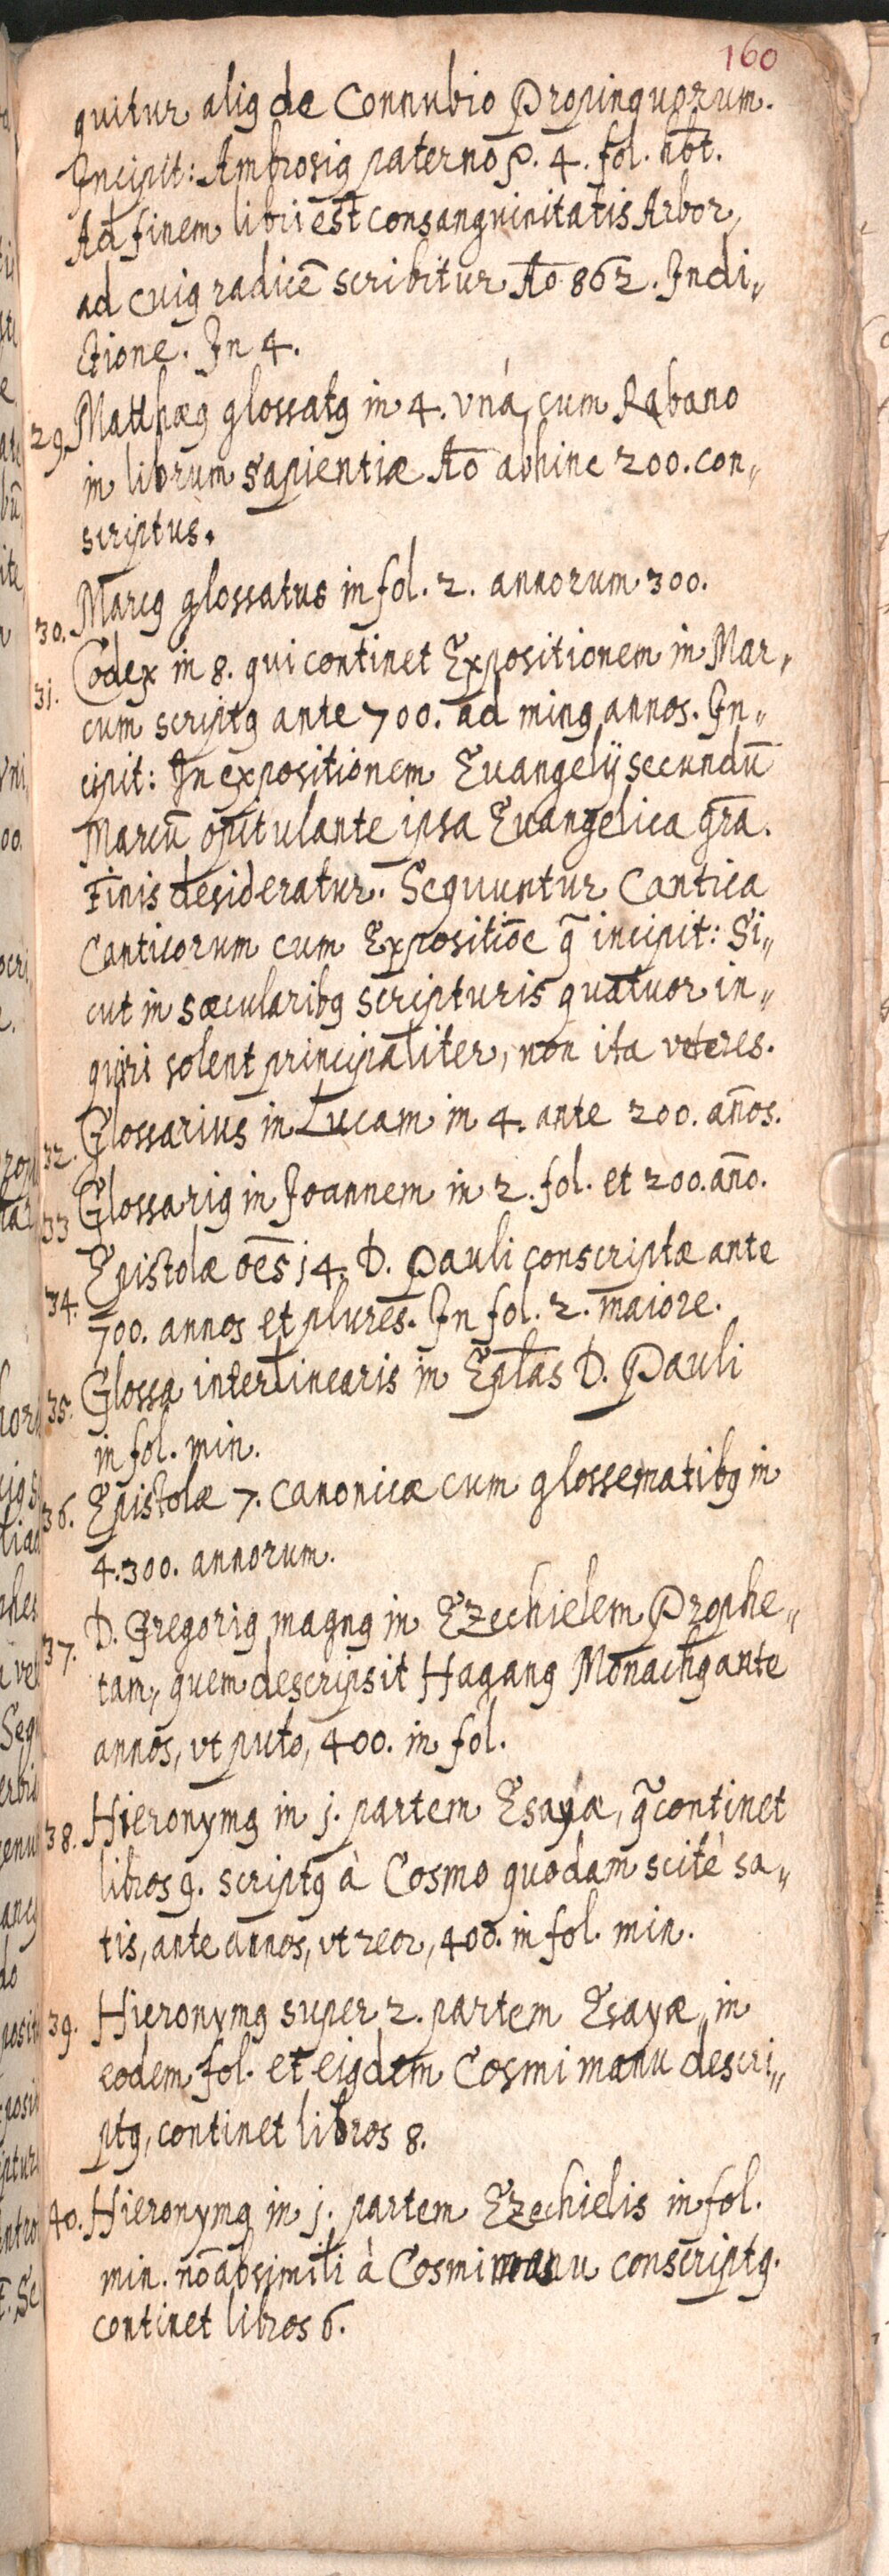 160
quitur aliꝰ de Connubio Propinquorum.
Incipit: Ambrosiꝰ paterno P. 4. fol. hbt.
Ad finem libri est consanguinitatis Arbor,
ad cuiꝰ radicē scribitur Aō 862. Indi„
ctione. In 4.
29. Matthæꝰ glossatꝰ in 4. vnà, cum Rabano
in librum Sapientiæ Aō abhinc 200. con„
scriptus.
30. Marcꝰ glossatus in fol. 2. annorum 300.
31. Codex in 8. qui continet Expositionem in Mar„
cum scriptꝰ ante 700. ad minꝰ annos. In„
cipit: In expositionem Euangelij secundū
Marcū opitulante ipsa Euangelica gra̅.
Finis desideratur. Sequuntur Cantica
Canticorum cum Expositiōe q̃ incipit: Si„
cut in sæcularibꝰ scripturis quatuor in„
quiri solent principaliter, non ita veteres.
32. Glossarius in Lucam in 4. ante 200. an̄os.
33 Glossariꝰ in Joannem in 2. fol. et 200. an̄o.
34. Epistolæ oēs j4. D. Pauli conscriptæ ante
700. annos et plures. In fol. 2. maiore.
35. Glossa interlinearis in Epl̄as D. Pauli
in fol. min.
36. Epistolæ 7. Canonicæ cum glossematibꝰ in
4. 300. annorum.
37. D. Gregoriꝰ magnꝰ in Ezechielem Prophe„
tam, quem descripsit Haganꝰ Monachꝰ ante
annos, vt puto, 400. in fol.
38. Hieronymꝰ in j. partem Esayæ, q̃ continet
libros 9. scriptꝰ à Cosmo quodam scitè sa„
tis, ante annos, vt reor, 400. in fol. min.
39. Hieronymꝰ super 2. partem Esayæ, in
eodem fol. et eiꝰdem Cosmi manu descri„
ptꝰ, continet libros 8.
40. Hieronymꝰ in j. partem Ezechielis in fol.
min. nō absimili à Cosmi manu conscriptꝰ.
continet libros 6.